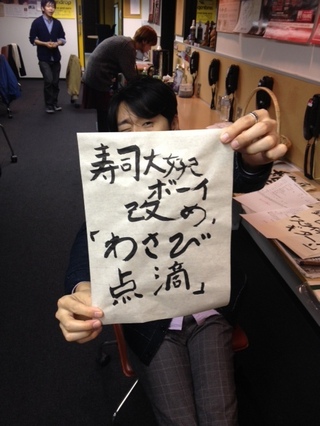 寿司大好き
ボーイ
改め、
「わさび
点滴」